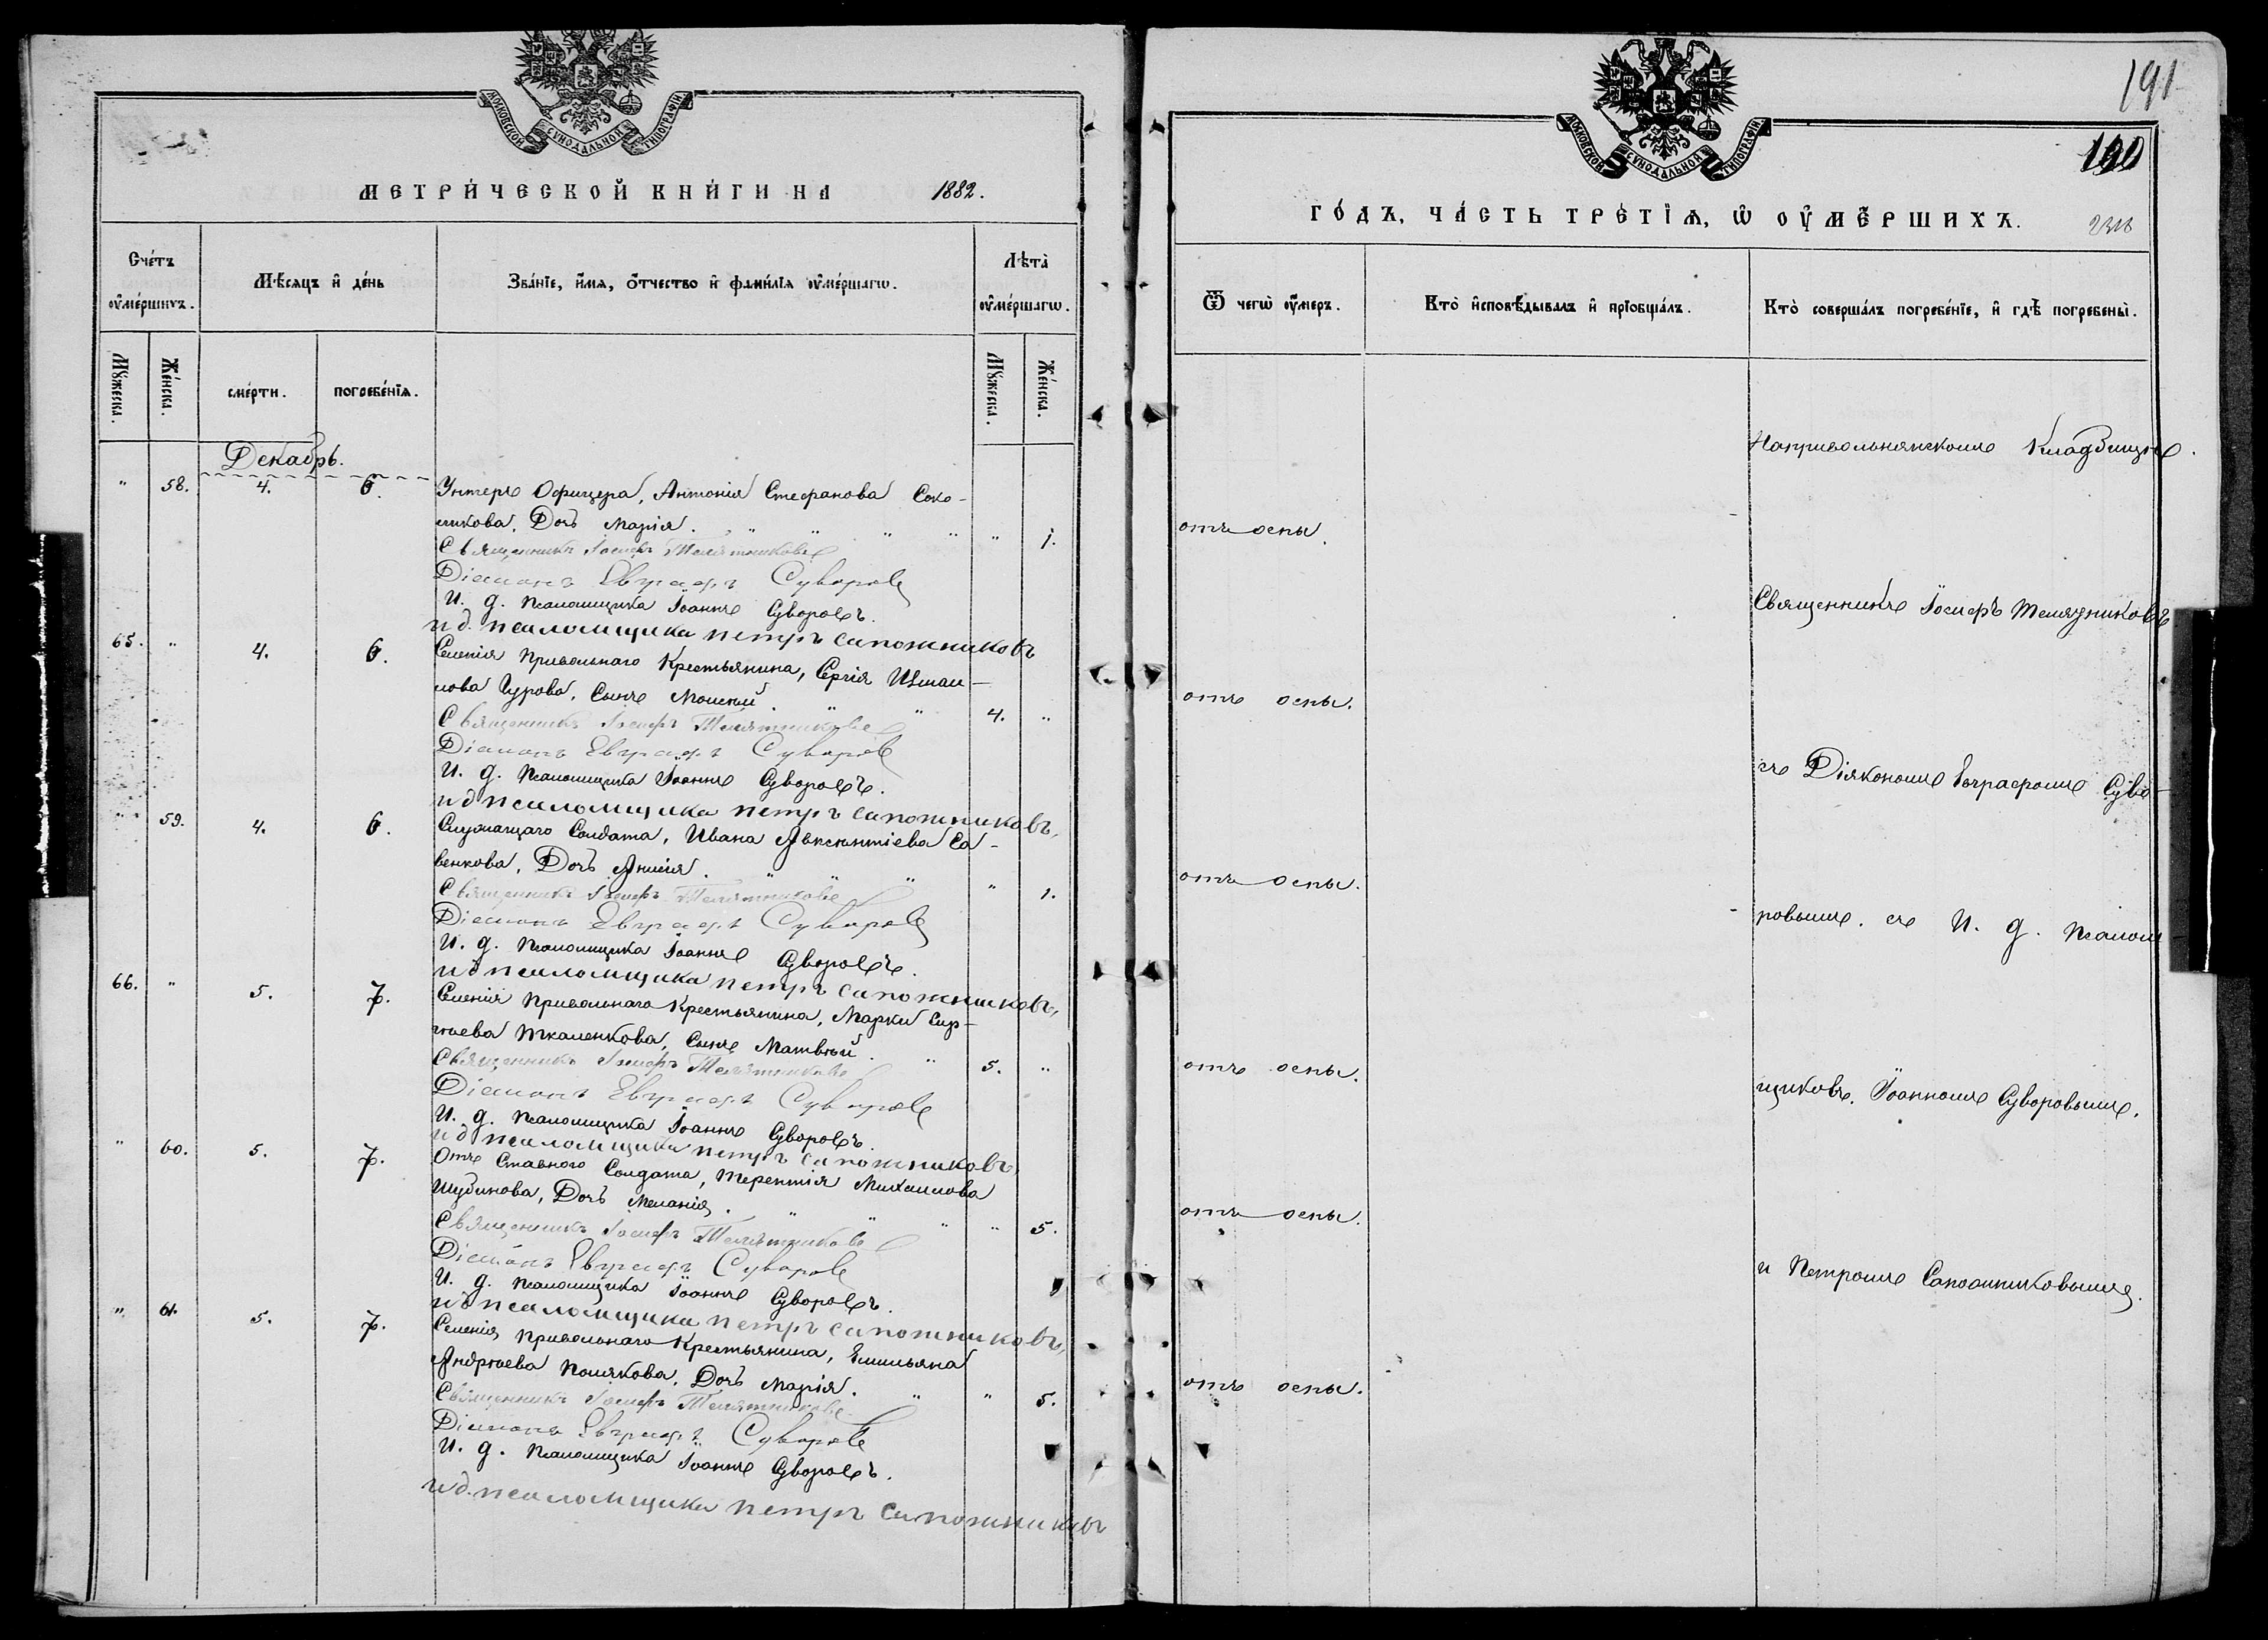 МОСКОВСКОЙ СѴНОДАЛЬНОЙ ТИПОГРАФІИ
МЕТРИ́ЧЕСКОЙ КНИ́ГИ НА 1882.
Счéтъ оу҆мéршихъ.
Мѣ́сяцъ и҆ дéнь
Звáнїе, и҆́мѧ, ѻ҆́тчество и҆ фамѝлїѧ оу҆мéршагѡ.
Лѣ́та оу҆мéршагѡ.
Мꙋ́жеска.
Же́нска.
смéрти.
погребéнїѧ.
Мꙋ́жеска.
Же́нска.
Декабрь.
" 58. 4. 6. Унтеръ Офицера, Антонія Стефанова Соко-
ликова, Дочь Марія. " " " " " 1.
Священникъ Іосифъ Телятниковъ
Діаконъ Евграфъ Суворовъ
И. д. псаломщика Іоаннъ Суворовъ.
и д. псаломщика петръ сапожниковъ
65. " 4. 6. Селенія Привольнаго Крестьянина, Сергія Измаи-
лова Гурова, Сынъ Моисей. " " 4. "
Священникъ Іосифъ Телятниковъ
Діаконъ Евграфъ Суворовъ
И. д. псаломщика Іоаннъ Суворовъ.
и д псаломщика петръ сапожниковъ,
" 59. 4. 6. Служащаго Солдата, Ивана Авксентіева Са-
венкова, Дочь Анисія. " " " " 1.
Священникъ Іосифъ Телятниковъ
Діаконъ Евграфъ Суворовъ
И. д. псаломщика Іоаннъ Суворовъ.
и д псаломщика петръ сапожниковъ,
66. " 5. 7. Селенія Привольнаго Крестьянина, Марки Сер-
гѣева Ткаленкова, Сынъ Матвѣй. " 5. "
Священникъ Іосифъ Телятниковъ
Діаконъ Евграфъ Суворовъ
И. д. псаломщика Іоаннъ Суворовъ.
и д псаломщика петръ сапожниковъ,
" 60. 5. 7. Отъ Ставного Солдата, Терентія Михаилова
Шубинова, Дочь Меланія. " " " " 5.
Священникъ Іосифъ Телятниковъ
Діаконъ Евграфъ Суворовъ
И. д. псаломщика Іоаннъ Суворовъ.
и д псаломщика петръ сапожниковъ,
" 61. 5. 7. Селенія Привольнаго Крестьянина, Емильяна
Андрѣева Полякова, Дочь Марія. " " 5.
Священникъ Іосифъ Телятниковъ
Діаконъ Евграфъ Суворовъ
И. д. псаломщика Іоаннъ Суворовъ.
и д. псаломщика петръ сапожниковъ
191
МОСКОВСКОЙ СѴНОДАЛЬНОЙ ТИПОГРАФІИ
190
ГО́ДЪ, ЧА́СТЬ ТРЕ́ТЇѦ, Ѡ҆ ОУ҆МЕ́РШИХЪ.
Ѿ чегѡ̀ оу҆́меръ.
Ктò и҆сповѣ́дывалъ и҆ прїѡбщáлъ.
Ктò совершáлъ погребéнїе, и҆ гдѣ̀ погребены̀.
На привольнянскомъ Кладбищѣ.
отъ оспы.
Священникъ Іосифъ Телятниковъ
отъ оспы.
съ Діякономъ Евграфомъ Суво-
отъ оспы.
ровымъ. съ И. д. псалом-
отъ оспы.
щиковъ. Іоанномъ Суворовымъ.
отъ оспы.
и Петромъ Сапожниковымъ.
отъ оспы.